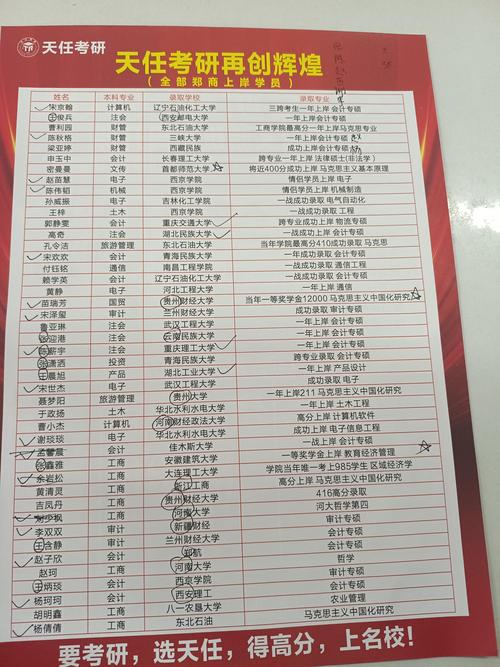 天任考研
天任考研再创辉煌
(全部郑商上岸学员)
姓名 本科专业 录取学校 录取专业
宋京翰 计算机 辽宁石油化工大学 三跨考生一年上岸 会计专硕
王俊兵 注会 西安邮电大学 一年上岸会计专硕
曹利园 财管 东北石油大学 工商学院最高分一年上岸马克思专业
陈秋格 财管 三峡大学 一年上岸会计专硕
梁亚婷 财管 西藏民族 成功上岸会计专硕
申玉中 会计 长春理工大学 跨专业一年上岸 法律硕士(非法学)
密曼曼 文传 首都师范大学 将近400分成功上岸 马克思主义基本原理
赵苗慧 电子 西京学院 情侣学员上岸 电子
陈伟韬 机械 西京学院 情侣学员上岸 机械制造
孙威振 电子 吉林化工学院 一战成功录取 电气自动化
王梓 土木 西京学院 一战成功录取 工程
郭静雯 会计 重庆交通大学 跨专业成功上岸 物流专硕
高奇 注会 湖北民族大学 一战成功上岸 会计专硕
孔令洁 旅游管理 东北石油大学 当年学院最高分410成功录取 马克思
宋欢欢 会计 青海民族大学 一战成功录取 会计专硕
付钰铭 通信 南昌工程学院 一年成功上岸 会计专硕
赖学英 会计 辽宁石油化工大学 一战成功录取 会计专硕
黄静 电子 河北工程大学 一年上岸 通信
苗瑞芳 国贸 贵州财经大学 当年一等奖学金12000 马克思主义中国化研究
宋泽玺 审计 兰州财经大学 成功录取 审计专硕
鲁亚琳 注会 武汉工程大学 一年上岸 会计专硕
张迎港 注会 云南民族大学 一年上岸 会计专硕
陈新宇 注会 重庆理工大学 一战成功录取 会计专硕
张潇西 投资 青海民族大学 跨专业录取 会计专硕
王晨旭 产品 湖北工业大学 一年上岸 产品设计
宋世杰 电子 武汉工程大学 成功录取 电子
聂梦阳 旅游管理 贵州大学 一年上岸211 马克思主义中国化研究
于政扬 土木 华北水利水电大学 一年上岸 土木工程
曹小杰 计算机 河南财经政法大学 高分上岸 计算机软件
谢琰琰 电子 华北水利水电大学 成功上岸 电子信息工程
孟馨晨 会计 佳木斯大学 一战上岸 会计专硕
张鑫雅 工商 安徽建筑大学 一等奖学金上岸 教育经济管理
余岩松 工商 大连理工大学 学院当年唯一考上985学生 区域经济学
黄清灵 工商 浙江工商 高分上岸 马克思主义中国化研究
吉凤丹 工商 贵州财经大学 416高分录取
工商 河南大学 河大哲学第四
李双双 审计 新疆财经 审计专硕
王含静 审计 兰州财经大学 会计专硕
赵子欣 会计 郑航 会计专硕
赵珂 工商 河南大学 哲学
王炳琰 会计 西京学院 审计专硕
杨珂珂 会计 西安理工 会计专硕
胡明鑫 工商 八一农垦大学 农业管理
杨倩倩 工商 东北石油 马克思主义中国化研究
要考研,选天任,得高分,上名校!